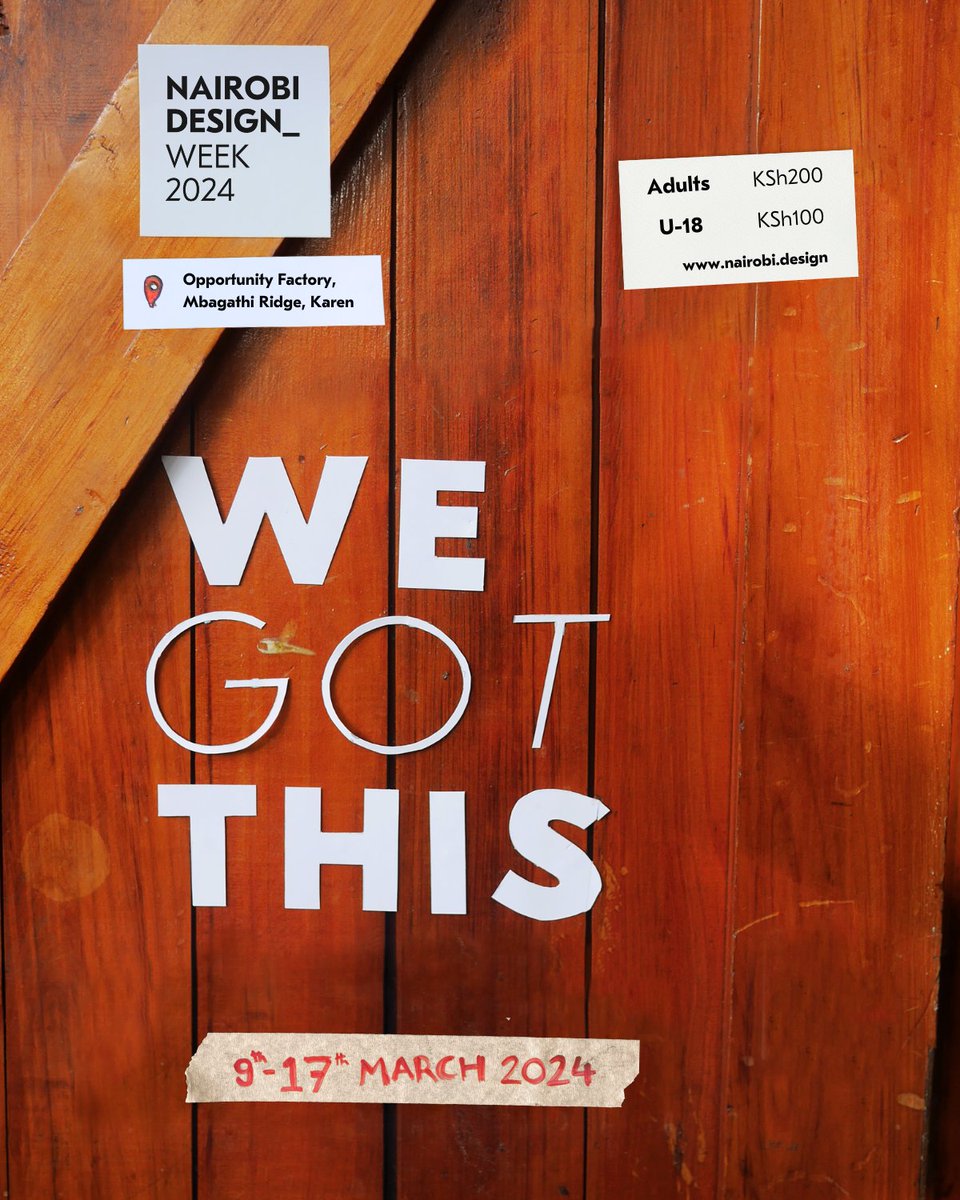 NAIROBI
DESIGN_
WEEK
2024
Opportunity Factory,
Mbagathi Ridge, Karen
Adults KSh200
U-18 KSh100
www.nairobi.design
WE
GOT
THIS
9th-17th MARCH 2024